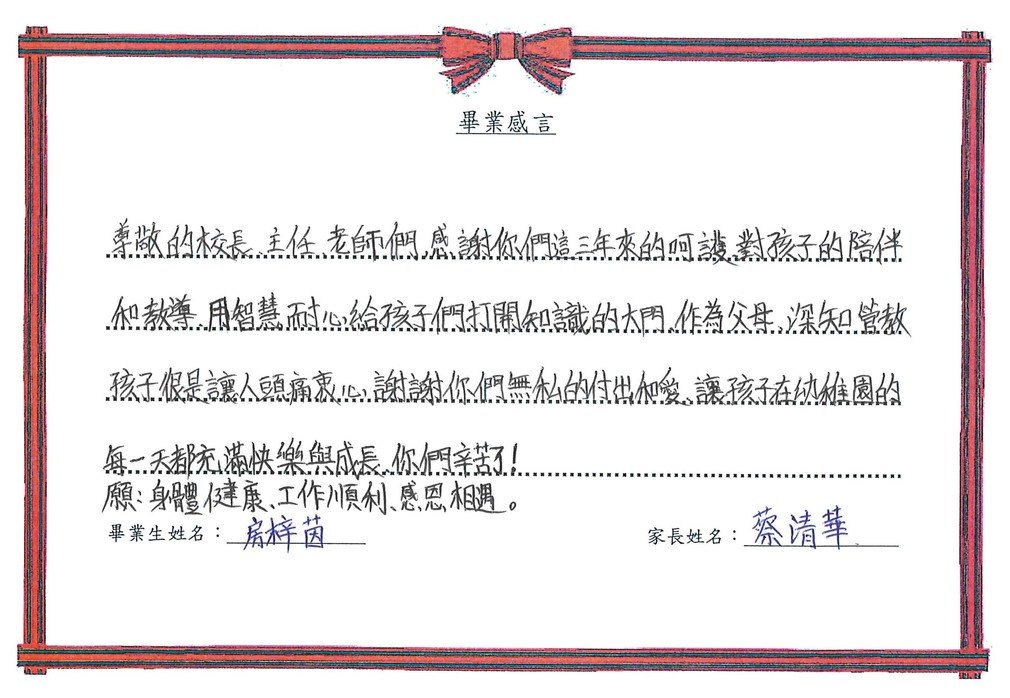 畢業感言
尊敬的校長、主任、老師們,感謝你們這三年來的呵護、對孩子的陪伴
和教導,用智慧、耐心給孩子們打開知識的大門,作為父母、深知管教
孩子很是讓人頭痛衷心,謝謝你們無私的付出和愛、讓孩子在幼稚園的
每一天都充滿快樂與成長、你們辛苦了!
願:身體健康、工作順利、感恩相遇。
畢業生姓名:房梓茵
家長姓名:蔡清華